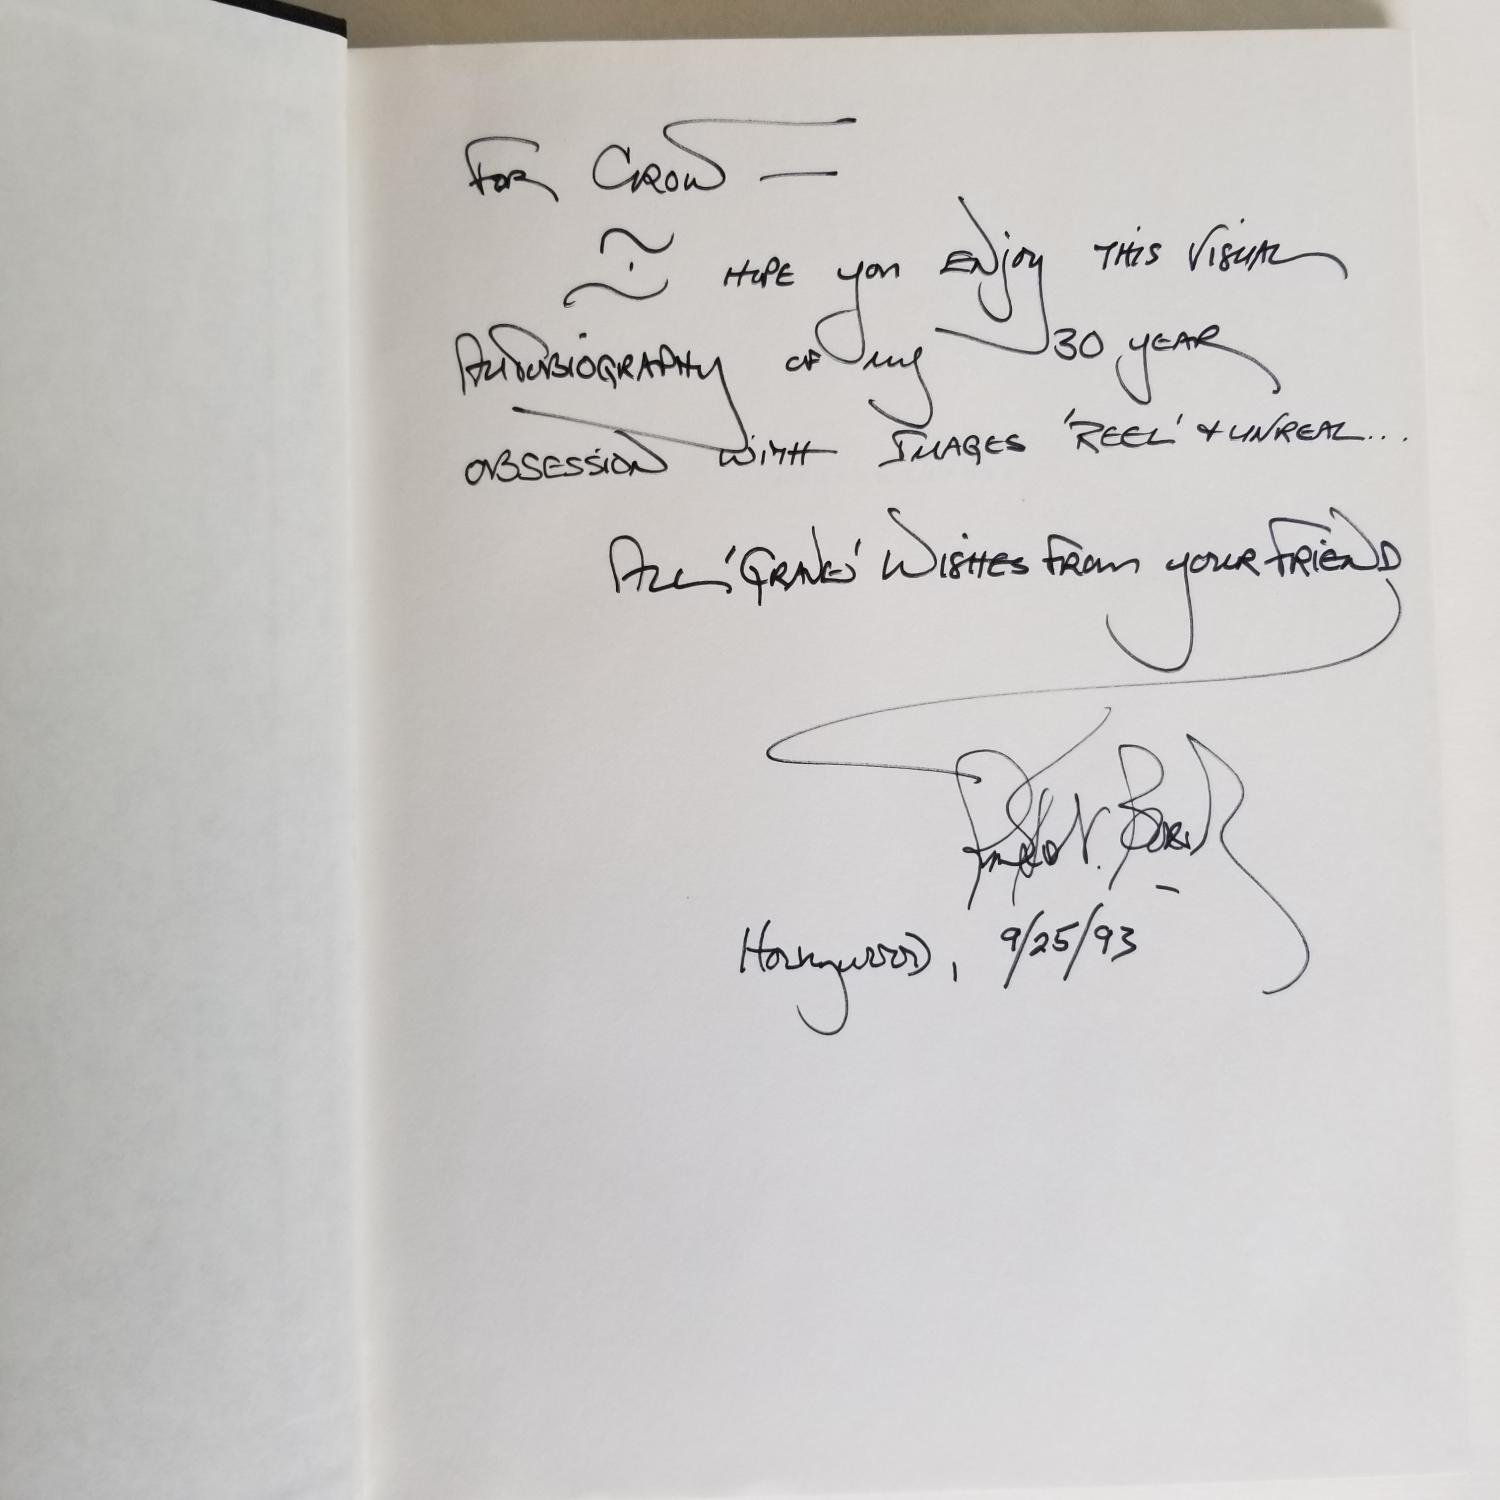 FOR CROW —
I HOPE you ENJOY THIS VISUAL
AUTOBIOGRAPHY OF my 30 YEAR
OBSESSION WITH IMAGES 'REEL' & UNREAL...
ALL 'GRAVE' WISHES FROM YOUR FRIEND
Ronald V. Borst
HOLLYWOOD, 9/25/93